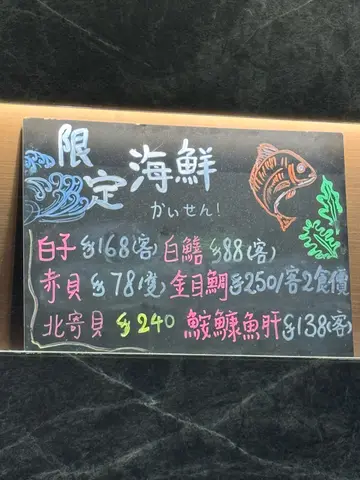 限定海鮮
かいせん!
白子$168(客) 白鱔$88(客)
赤貝$78(隻) 金目鯛$250/客2食價
北寄貝$240 鮟鱇魚肝$138(客)